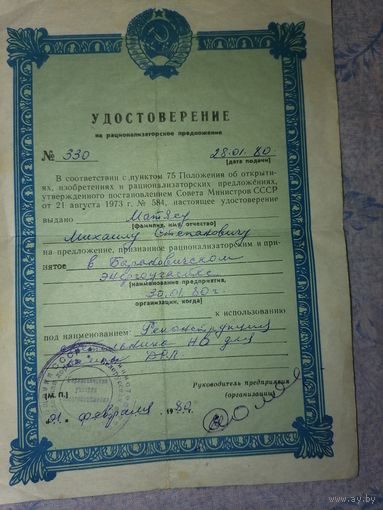 УДОСТОВЕРЕНИЕ
на рационализаторское предложение
№ 330 28.01.80
(дата подачи)
В соответствии с пунктом 75 Положения об открыти-
ях, изобретениях и рационализаторских предложениях,
утвержденного постановлением Совета Министров СССР
от 21 августа 1973 г. № 584, настоящее удостоверение
выдано Матясу
(фамилия, имя, отчество)
Михаилу Степановичу
на предложение, признанное рационализаторским и при-
нятое в Барановичском
энергоучастке
(наименование предприятия,
30.01.80 г.
организации, когда)
к использованию
под наименованием: Реконструкция
для
Руководитель предприятия
(организации)
[М. П.]
21. февраля 1980 г.
www.ay.by